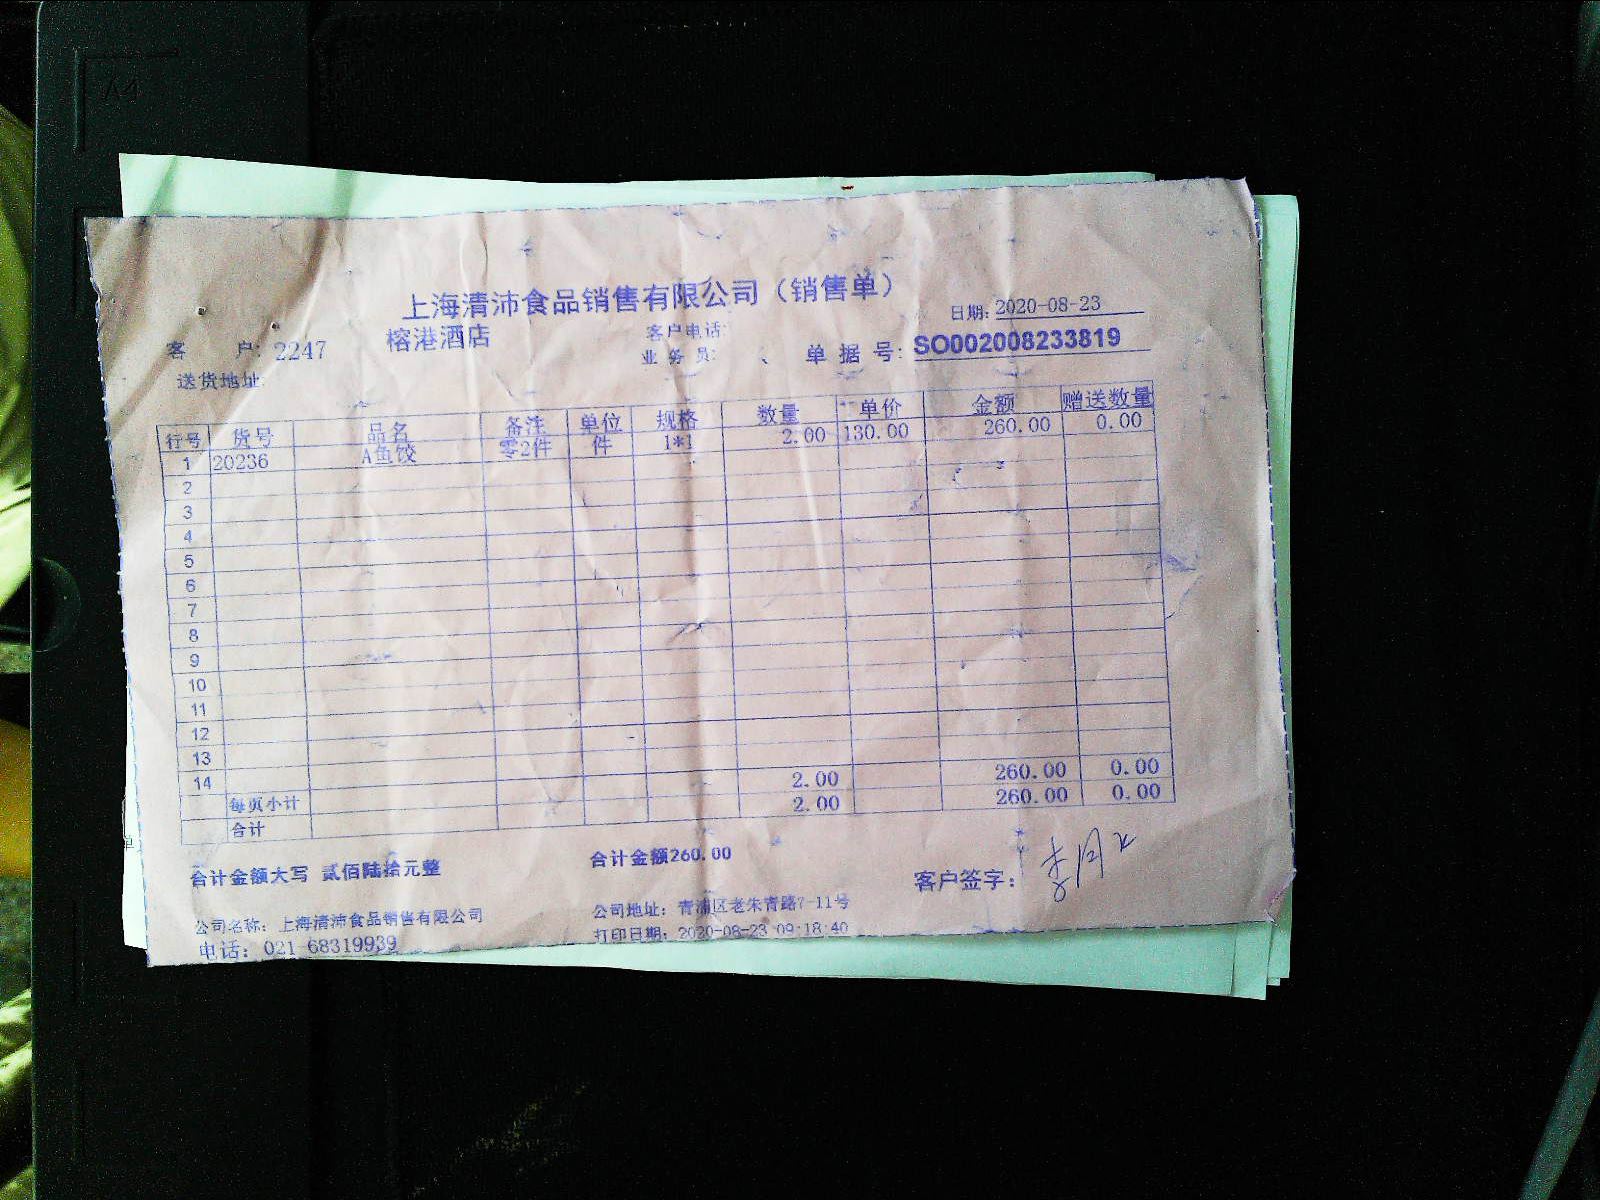 A4
上海清沛食品销售有限公司（销售单）
日期: 2020-08-23
客 户: 2247 榕港酒店 客户电话:
业 务 员: 单 据 号: SO002008233819
送货地址:
行号 货号 品名 备注 单位 规格 数量 单价 金额 赠送数量
1 20236 A鱼饺 零2件 件 1*1 2.00 130.00 260.00 0.00
2
3
4
5
6
7
8
9
10
11
12
13
14
每页小计 2.00 260.00 0.00
合计 2.00 260.00 0.00
合计金额大写 贰佰陆拾元整 合计金额260.00
客户签字:
公司名称: 上海清沛食品销售有限公司 公司地址: 青浦区老朱青路7-11号
电话: 021-68319939 打印日期: 2020-08-23 09:18:40